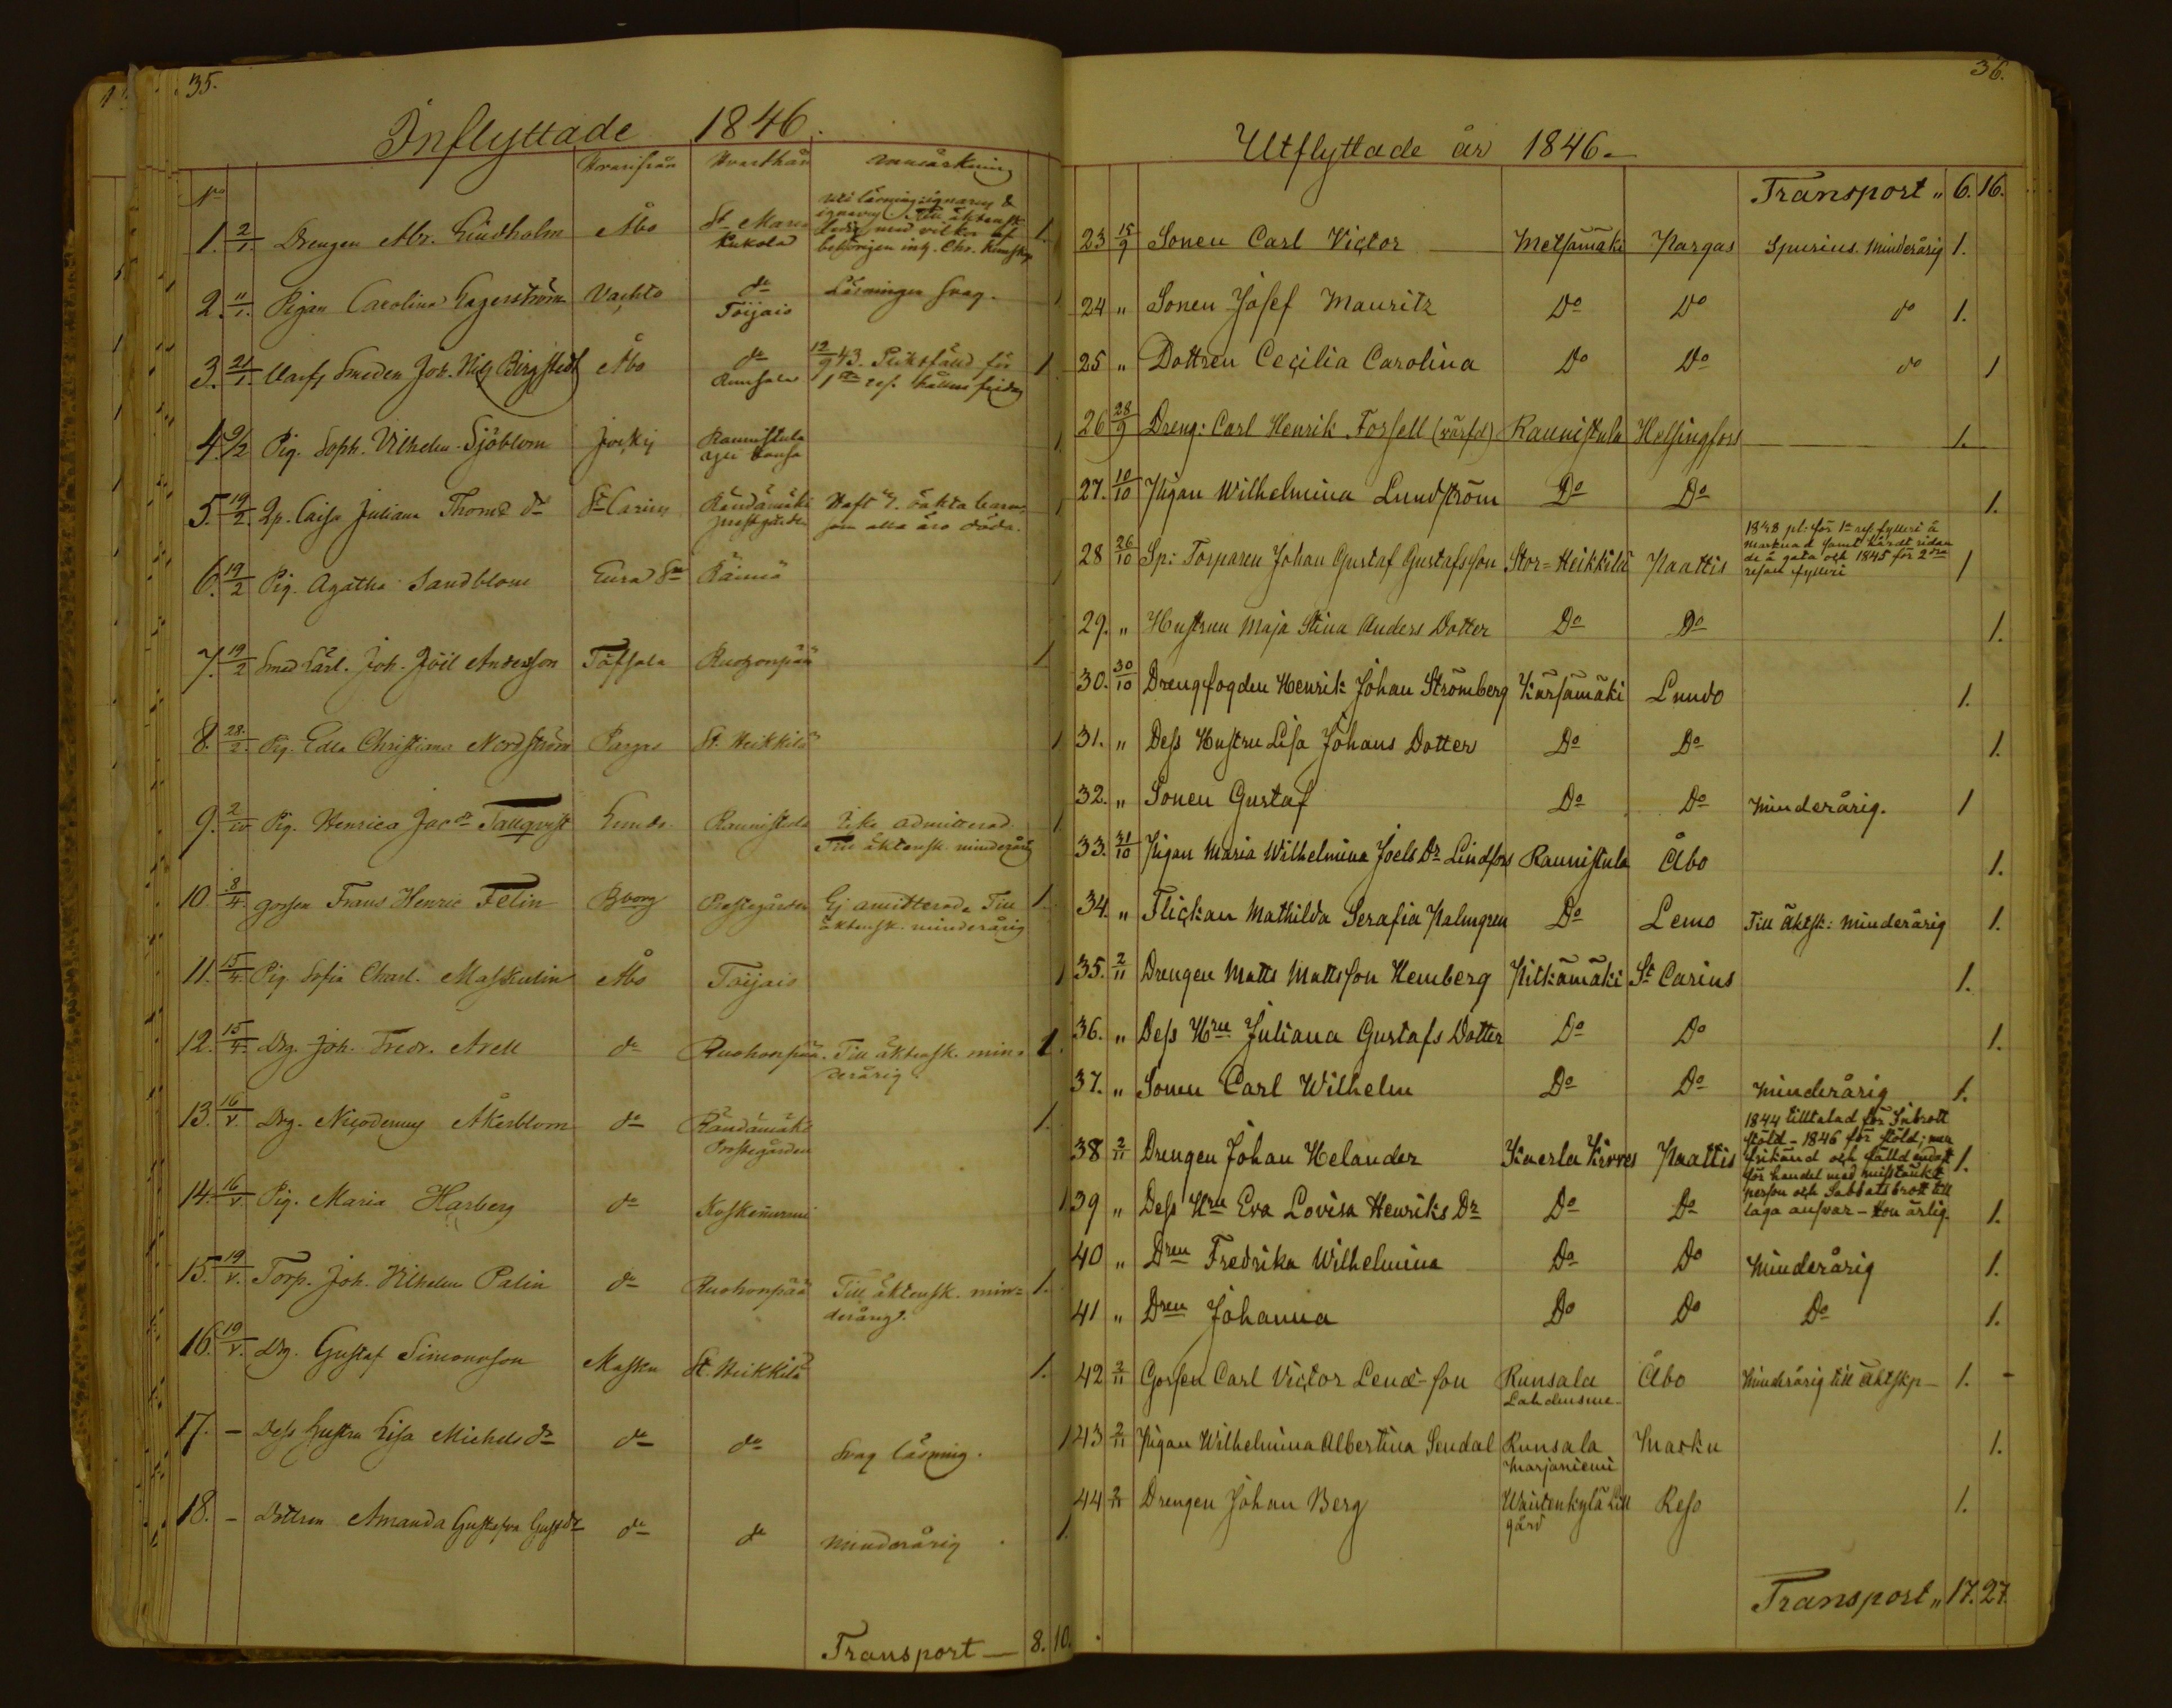 35.
Inflyttade 1846.
No Hvarifrån Hvarthän Anmärkning
1. 2/1. Drengen Abr. Lindholm Åbo St Marie Kukola 1.
2. 11/1. Pigan Carolina Lagerström Vachto do Toijais Läsningen svag. 1
3. 21/1. Joh. Bergstedt Åbo do Runsala 12/9 43. 1
4. 9/2 Pig. Soph. Vilhelm. Sjöblom Jockis Raunistula 1
5. 19/2. Caisa Juliana Thoms dr St Carins Räntämäki prestgården Haft 2. oäkta barn som alla äro döda. 1
6. 19/2 Pig. Agatha Sandblom Eura 1
7. 19/2 Smed Lärl. Joh. Joël Andersson Töfsala Ruohonpää 1
8. 28/2. Pig. Edla Christiana Nordström Pargas St. Heikkilä 1
9. 2/10 Pig. Henrica Jac dr Tallqvist Lundo Raunistula Icke admitterad Till äktensk. minderårig 1
10. 8/4. gossen Frans Henric Felin Bborg Prestegården Ej amitterad. Till äktensk. minderårig 1.
11. 15/4. Pig. Sofia Charl. Maskulin Åbo Toijais 1
12. 15/4. Drg. Joh. Fredr. Arell do Ruohonpää. Till äktensk. minderårig. 1.
13. 16/V. Drg. Nicodemus Åkerblom do Räntämäki Prestegården 1.
14. 16/V. Pig. Maria Harberg do Koskenurmi 1
15. 19/V. Torp. Joh. Vilhelm Palin do Ruohonpää Till äktensk. minderårig. 1.
16. 19/V. Drg. Gustaf Simonsson Masku St. Heikkilä 1.
17. - Dess hustru Lisa Michels dr do do Svag läsning. 1
18. - Dottren Amanda Gustafva Gust dr do do minderårig. 1.
Transport — 8. 10.
36.
Utflyttade år 1846.
Transport " 6. 16.
23 15/9 Sonen Carl Victor Metsämäki Pargas Spurius. Minderårig 1.
24 " Sonen Josef Mauritz Do Do do 1.
25 " Dottren Cecilia Carolina Do Do do 1
26 28/9 Dreng: Carl Henrik Forsell (värfd) Raunistula Helsingfors 1.
27. 10/10 Pigan Wilhelmina Lundström Do Do 1.
28 26/10 Sp: Torparen Johan Gustaf Gustafsson Stor-Heikkilä Paattis 1838 pl. för 1a res. fylleri å marknad samt hårdt ridande å gata och 1845 för 2dra resan fylleri 1
29. " Hustrun Maja Stina Anders Dotter Do Do 1.
30. 30/10 Drengfogden Henrik Johan Strömberg Kärsämäki Lundo 1.
31. " Dess Hustru Lisa Johans Dotter Do Do 1.
32. " Sonen Gustaf Do Do Minderårig. 1
33. 31/10 Pigan Maria Wilhelmina Joels Dr Lindfors Raunistula Åbo 1.
34. " Flickan Mathilda Serafia Palmgren Do Lemo Till Äktsk: Minderårig 1.
35. 2/11 Drengen Matts Mattsson Hemberg Pitkämäki St Carins 1.
36. " Dess Hru Juliana Gustafs Dotter Do Do 1.
37. " Sonen Carl Wilhelm Do Do Minderårig 1.
38 2/11 Drengen Johan Helander Kaerla Kirves Paattis 1844 tilltalad för Inbrott stöld - 1846 för stöld; men frikänd och fälld endast för handel med misstänkt person och Sabbatsbrott till laga ansvar - Hon ärlig. 1.
39 " Dess Hru Eva Lovisa Henriks Dr Do Do 1.
40 " Dren Fredrika Wilhelmina Do Do Minderårig 1.
41 " Dren Johanna Do Do Do 1.
42 2/11 Gossen Carl Victor Lend-son Runsala Lahdensue. Åbo Minderårig till Äktskp - 1. -
43 2/11 Pigan Wilhelmina Albertina Sendal Runsala Marjaniemi Masku 1.
44 2/11 Drengen Johan Berg Waistenkylä Lill gård Reso 1.
Transport " 17. 27.